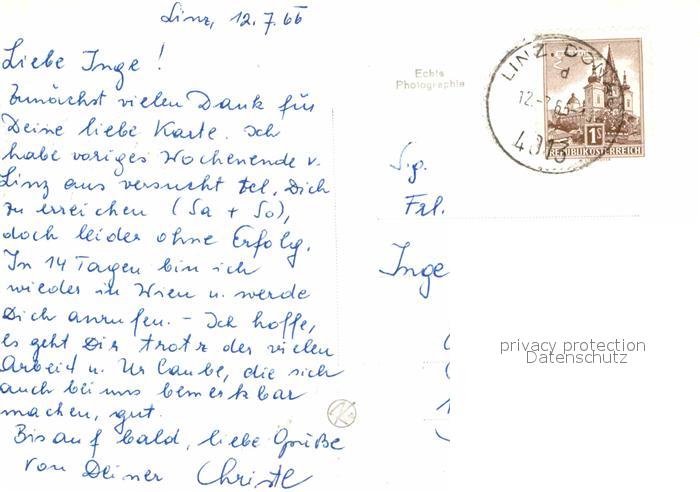 Linz, 12.7.66
Liebe Inge!
Zunächst vielen Dank für
Deine liebe Karte. Ich
habe voriges Wochenende v.
Linz aus versucht tel. Dich
zu erreichen (Sa + So),
doch leider ohne Erfolg.
In 14 Tagen bin ich
wieder in Wien u. werde
Dich anrufen. - Ich hoffe,
es geht Dir trotz der vielen
Arbeit u. Urlaube, die sich
auch bei uns bemerkbar
machen, gut.
Bis auf bald, liebe Grüße
von Deiner Christl
Echte
Photographie
LINZ, DONAU
d
12.-7.66
4013
1S
REPUBLIK ÖSTERREICH
S.g.
Frl.
Inge
privacy protection
Datenschutz